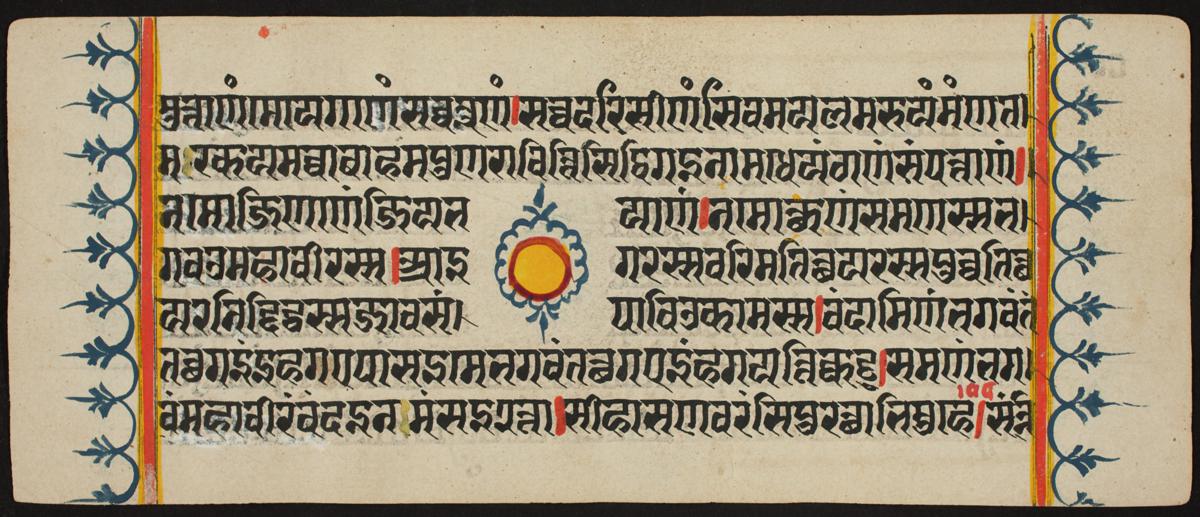 मुत्ताणंमोयगाणंसव्वन्नुणं।सव्वदरिसीणंसिवमयलमरुयमंणंतम
रकयमव्वाबाहमपुणरावित्तिसिद्धिगइनामधेयंठाणंसंपत्ताणं।
नमोजिणाणंजियभयाणं।नमोत्थुणंसमणस्सभ
गवउमहावीरस्स।आइगरस्सचरिमतित्थयरस्सपुव्वतित्थ
यरनिद्दिट्ठस्सजावसंपाविउकामस्स।वंदामिणंभगवंतं
तत्थगइंइहगएपासउमेभगवंतत्थगएइंहगयंत्तिकट्टु।समणंभग
वंमहावीरंवंदइनमंसइ२त्ता।सीहासणवरंसिपुरत्थाभिमुहे।संन्नि